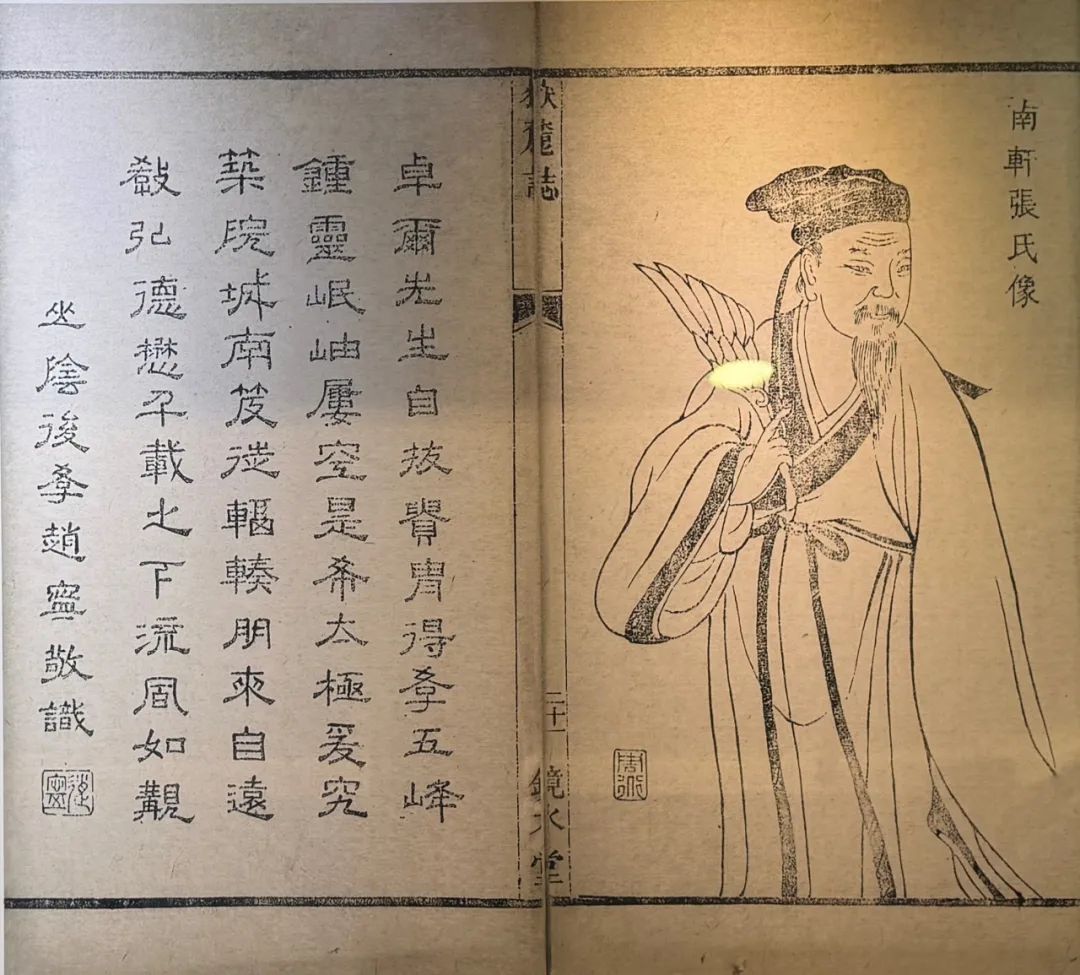 南軒張氏像
嶽麓誌
二十一
鏡水堂
卓爾先生自拔貴胄得學五峰
鍾靈岷岫屢空是希太極爰究
築院城南笈從輻輳朋來自遠
教弘德懋千載之下流風如覯
山陰後學趙寧敬識